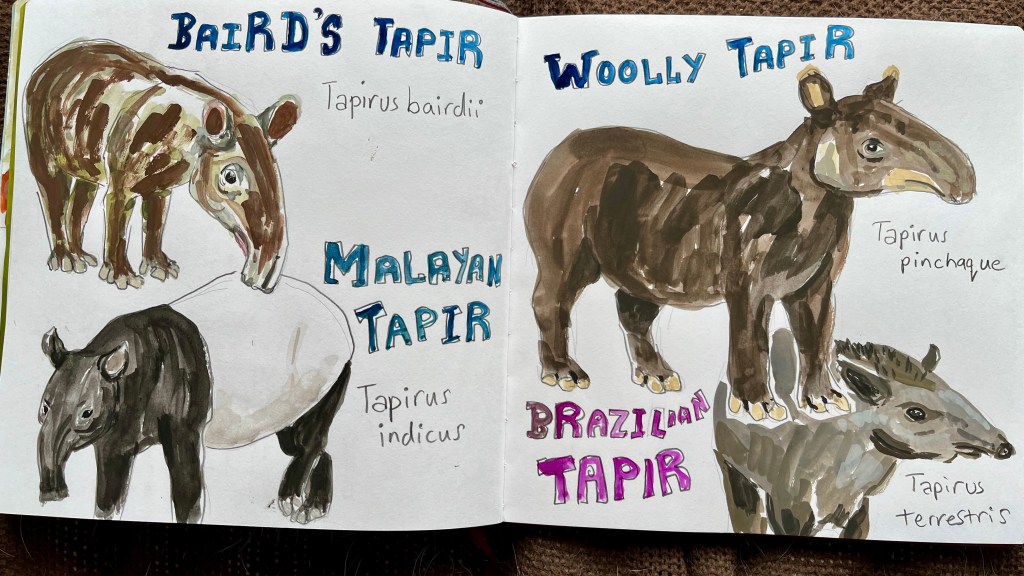 BAIRD'S TAPIR
Tapirus bairdii
MALAYAN
TAPIR
Tapirus
indicus
WOOLLY TAPIR
Tapirus
pinchaque
BRAZILIAN
TAPIR
Tapirus
terrestris